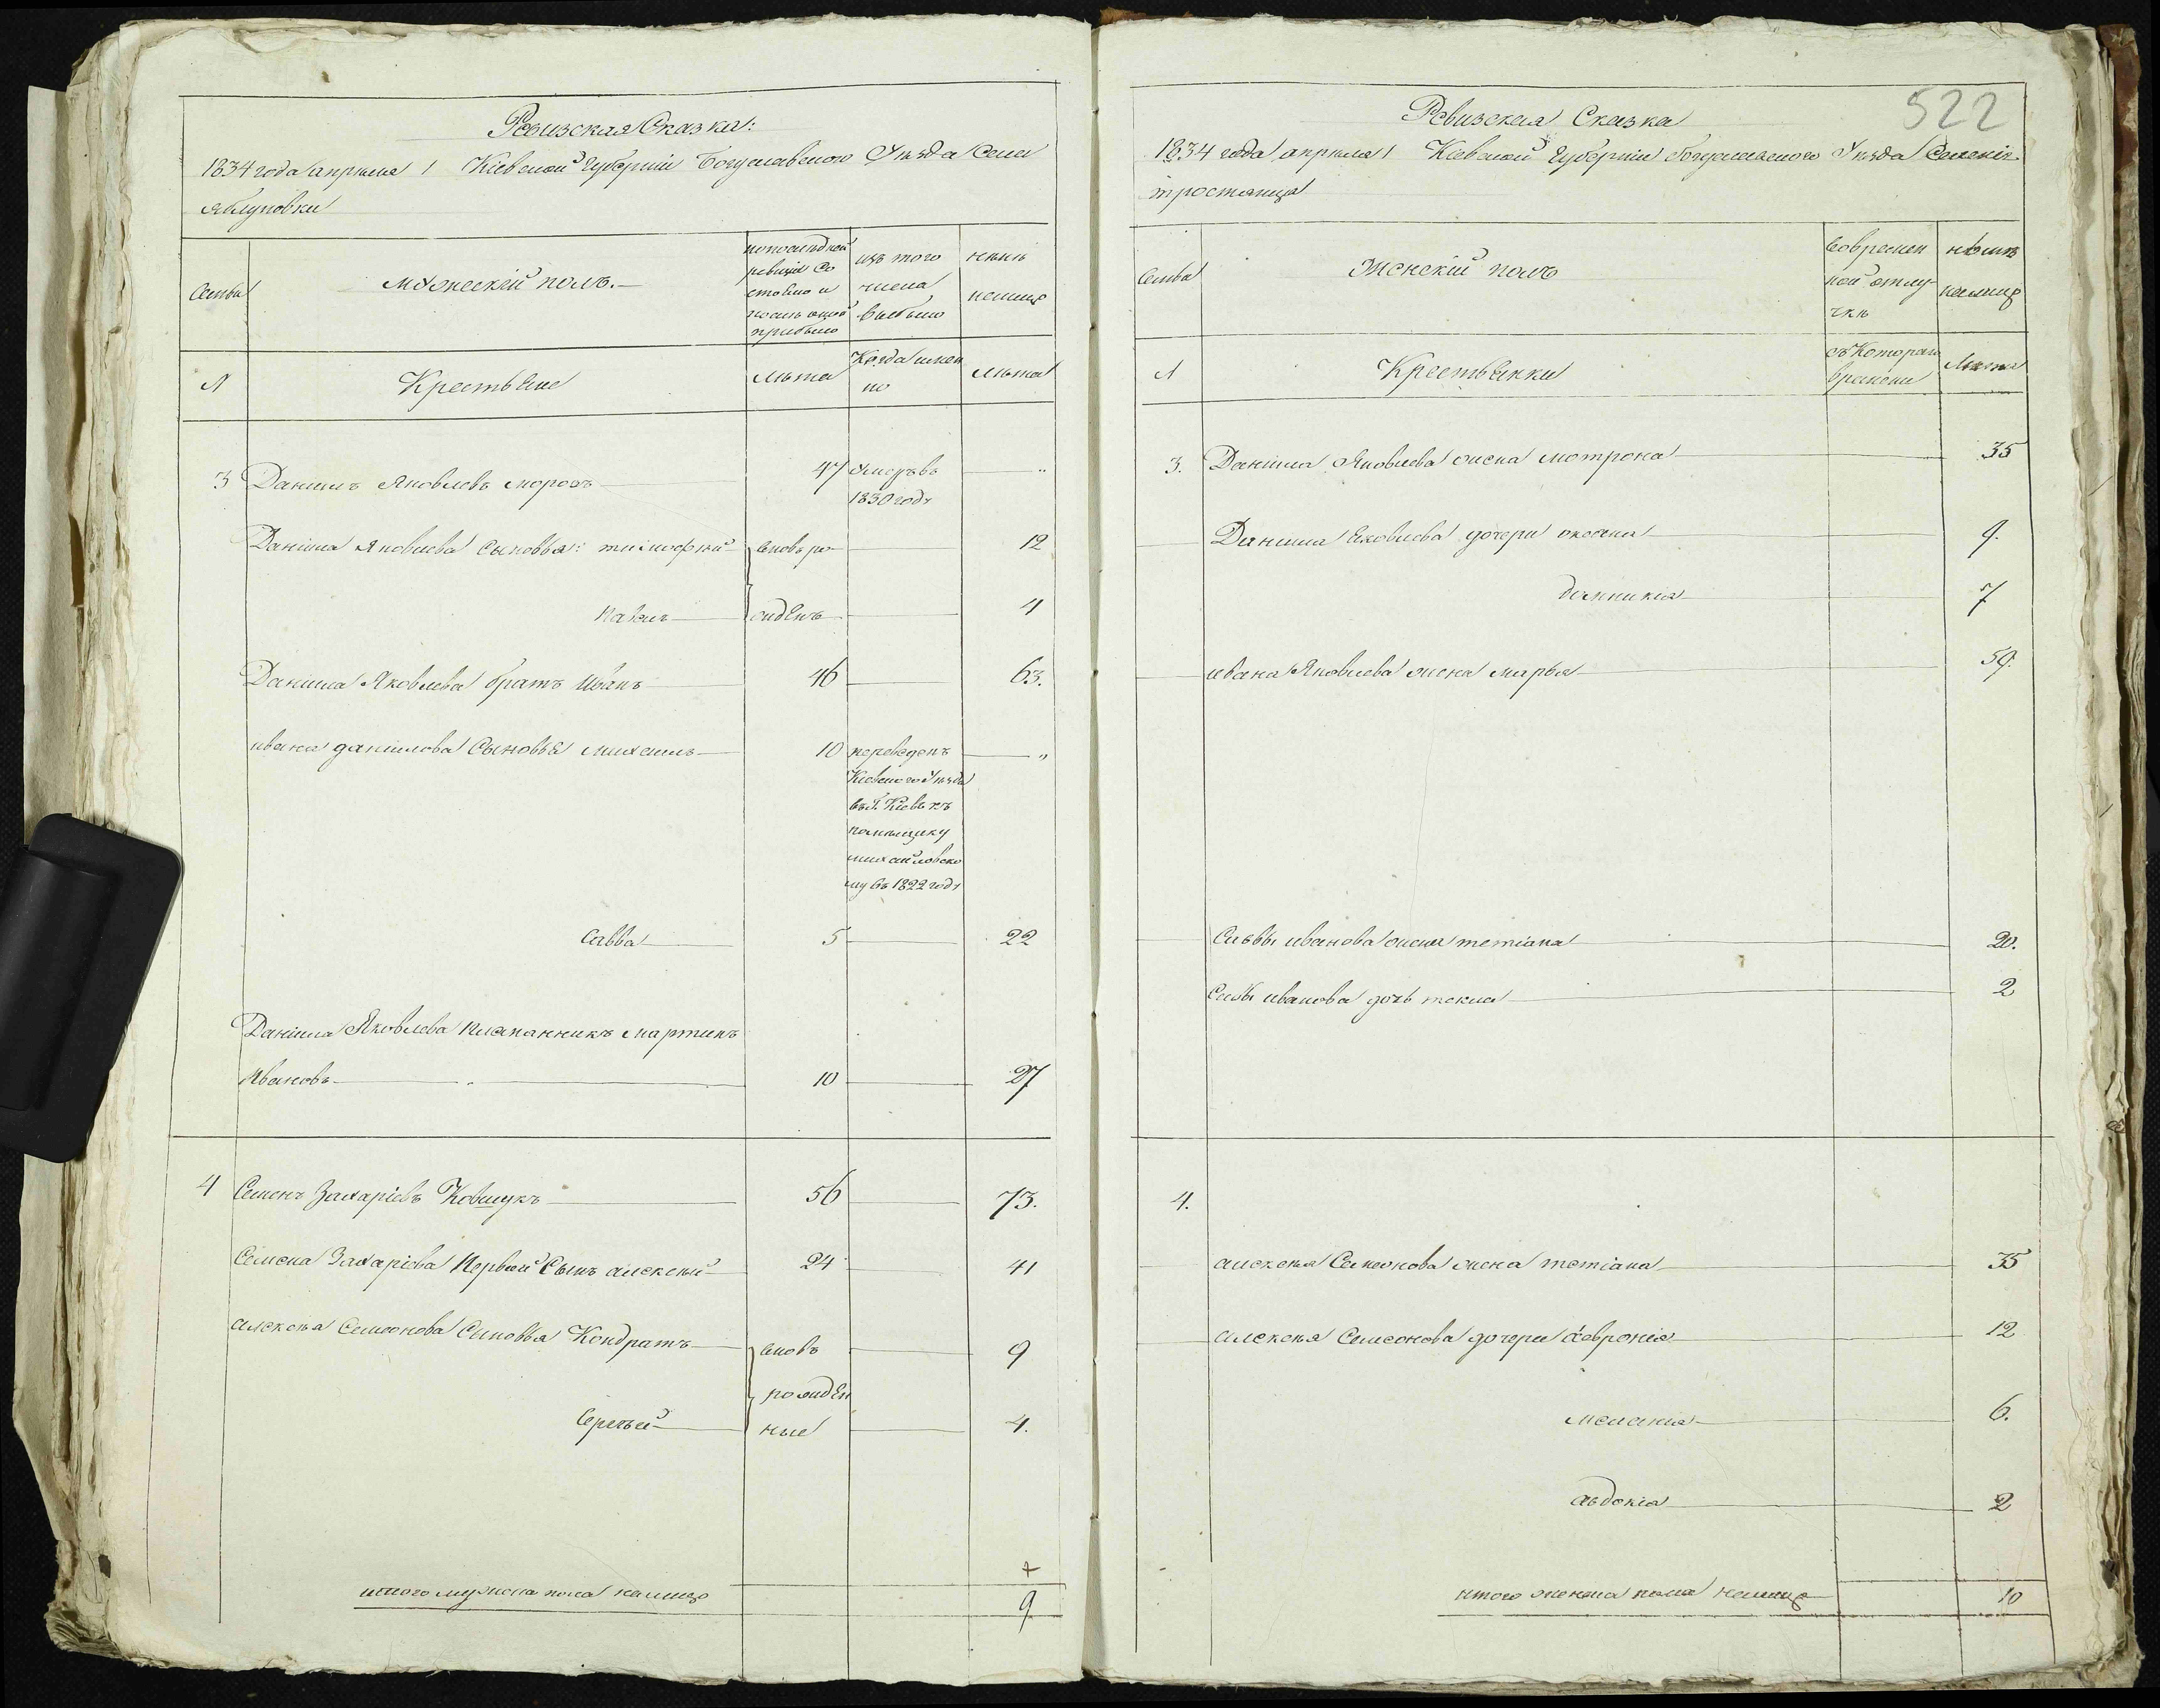 Ревизская Сказка:
1834 года апрѣля 1 Кіевской Губерніи Богуславского Уѣзда Села
Яблуновки
Семья
Мужескій полъ.
попослѣдней
ревизіи со
стояло и
послѣ оной
прибыло
изъ того
числа
выбыло
нынѣ
налицо
№
Крестьяне
лѣта
Когда имен
но
лѣта
3 Данилъ Яковлевъ Морозъ 47 умеръ въ "
1830 годѣ
Даніила Яковлева Сыновья: тимофей вновь ро 12
Павелъ жденъ 4
Даніила Яковлева братъ Иванъ 46 63.
ивана данилова Сыновья михаилъ 10 переведенъ "
Кіевского Уѣзда
въ Г. Кіевъ къ
помѣщику
михайловско
му въ 1822 годѣ
Савва 5 22
Даніила Яковлева племянникъ мартинъ
Ивановъ 10 27
4 Семенъ Захаріевъ Ковшукъ 56 73.
Семена Захаріева Первой Сынъ алексѣй 24 41
алексѣя Семеонова Сыновья Кондратъ вновь 9
рожден
Сергѣй ные 4.
+
итого мужеска пола налицо 9
522
Ревизская Сказка
1834 года апрѣля 1 Кіевской Губерніи Богуславского Уѣзда Селенія
тростянца
Семья
Женскій полъ
Во времен
ной отлу-
чкѣ
нынѣ
налицо
№
Крестьянки
съ Котораго
времени
Лѣта
3. Даніила Яковлева жена мотрона 35
Даниила Яковлева дочери оксана 9.
домникія 7
ивана Яковлева жена марья 59.
Саввы иванова жена тетіана 20.
Саввы иванова дочь текла 2
4.
алексѣя Семеонова жена тетіана 35
алексѣя Семеонова дочери хевронія 12
меланія 6.
авдокія 2
итого женска пола налицо 10